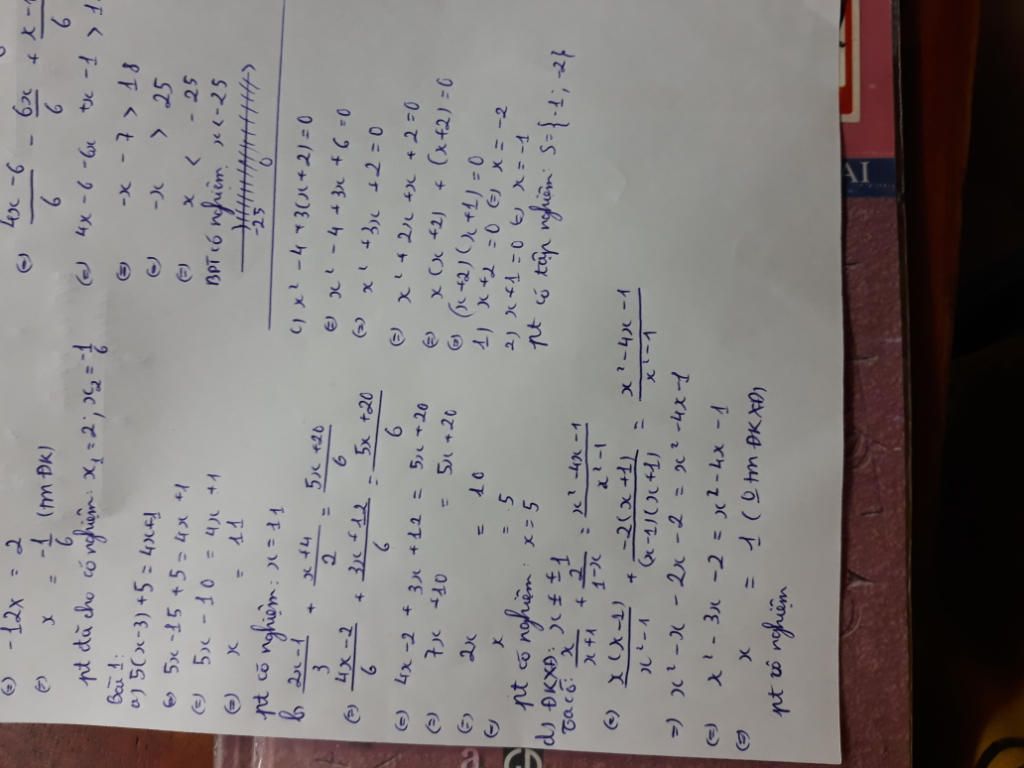 (=) -12x = 2
(=) x = -1/6 (tmĐK)
pt đã cho có nghiệm: x₁ = 2; x₂ = -1/6
Bài 1:
a) 5(x-3)+5 = 4x+1
(=) 5x-15+5 = 4x+1
(=) 5x-10 = 4x+1
(=) x = 11
pt có nghiệm: x = 11
b, 2x-1/3 + x+4/2 = 5x+20/6
(=) 4x-2/6 + 3x+12/6 = 5x+20/6
(=) 4x-2 + 3x+12 = 5x+20
(=) 7x+10 = 5x+20
(=) 2x = 10
(=) x = 5
pt có nghiệm: x = 5
d) ĐKXĐ: x ≠ ±1
Ta có: x/x+1 + 2/1-x = x²-4x-1/x²-1
(=) x(x-1)/x²-1 + -2(x+1)/(x-1)(x+1) = x²-4x-1/x²-1
=) x²-x-2x-2 = x²-4x-1
(=) x²-3x-2 = x²-4x-1
(=) x = 1 (0 tm ĐKXĐ)
pt có nghiệm
(=) 4x-6/6 - 6x/6 + x-1/6
(=) 4x-6-6x+x-1 > 1
(=) -x-7 > 18
(=) -x > 25
(=) x < -25
BPT có nghiệm x<-25
-25 0
c) x²-4+3(x+2)=0
(=) x²-4+3x+6=0
(=) x²+3x+2=0
(=) x²+2x+x+2=0
(=) x(x+2)+(x+2)=0
(=) (x+2)(x+1)=0
1) x+2=0 (=) x=-2
2) x+1=0 (=) x=-1
pt có tập nghiệm: S={-1;-2}
AI